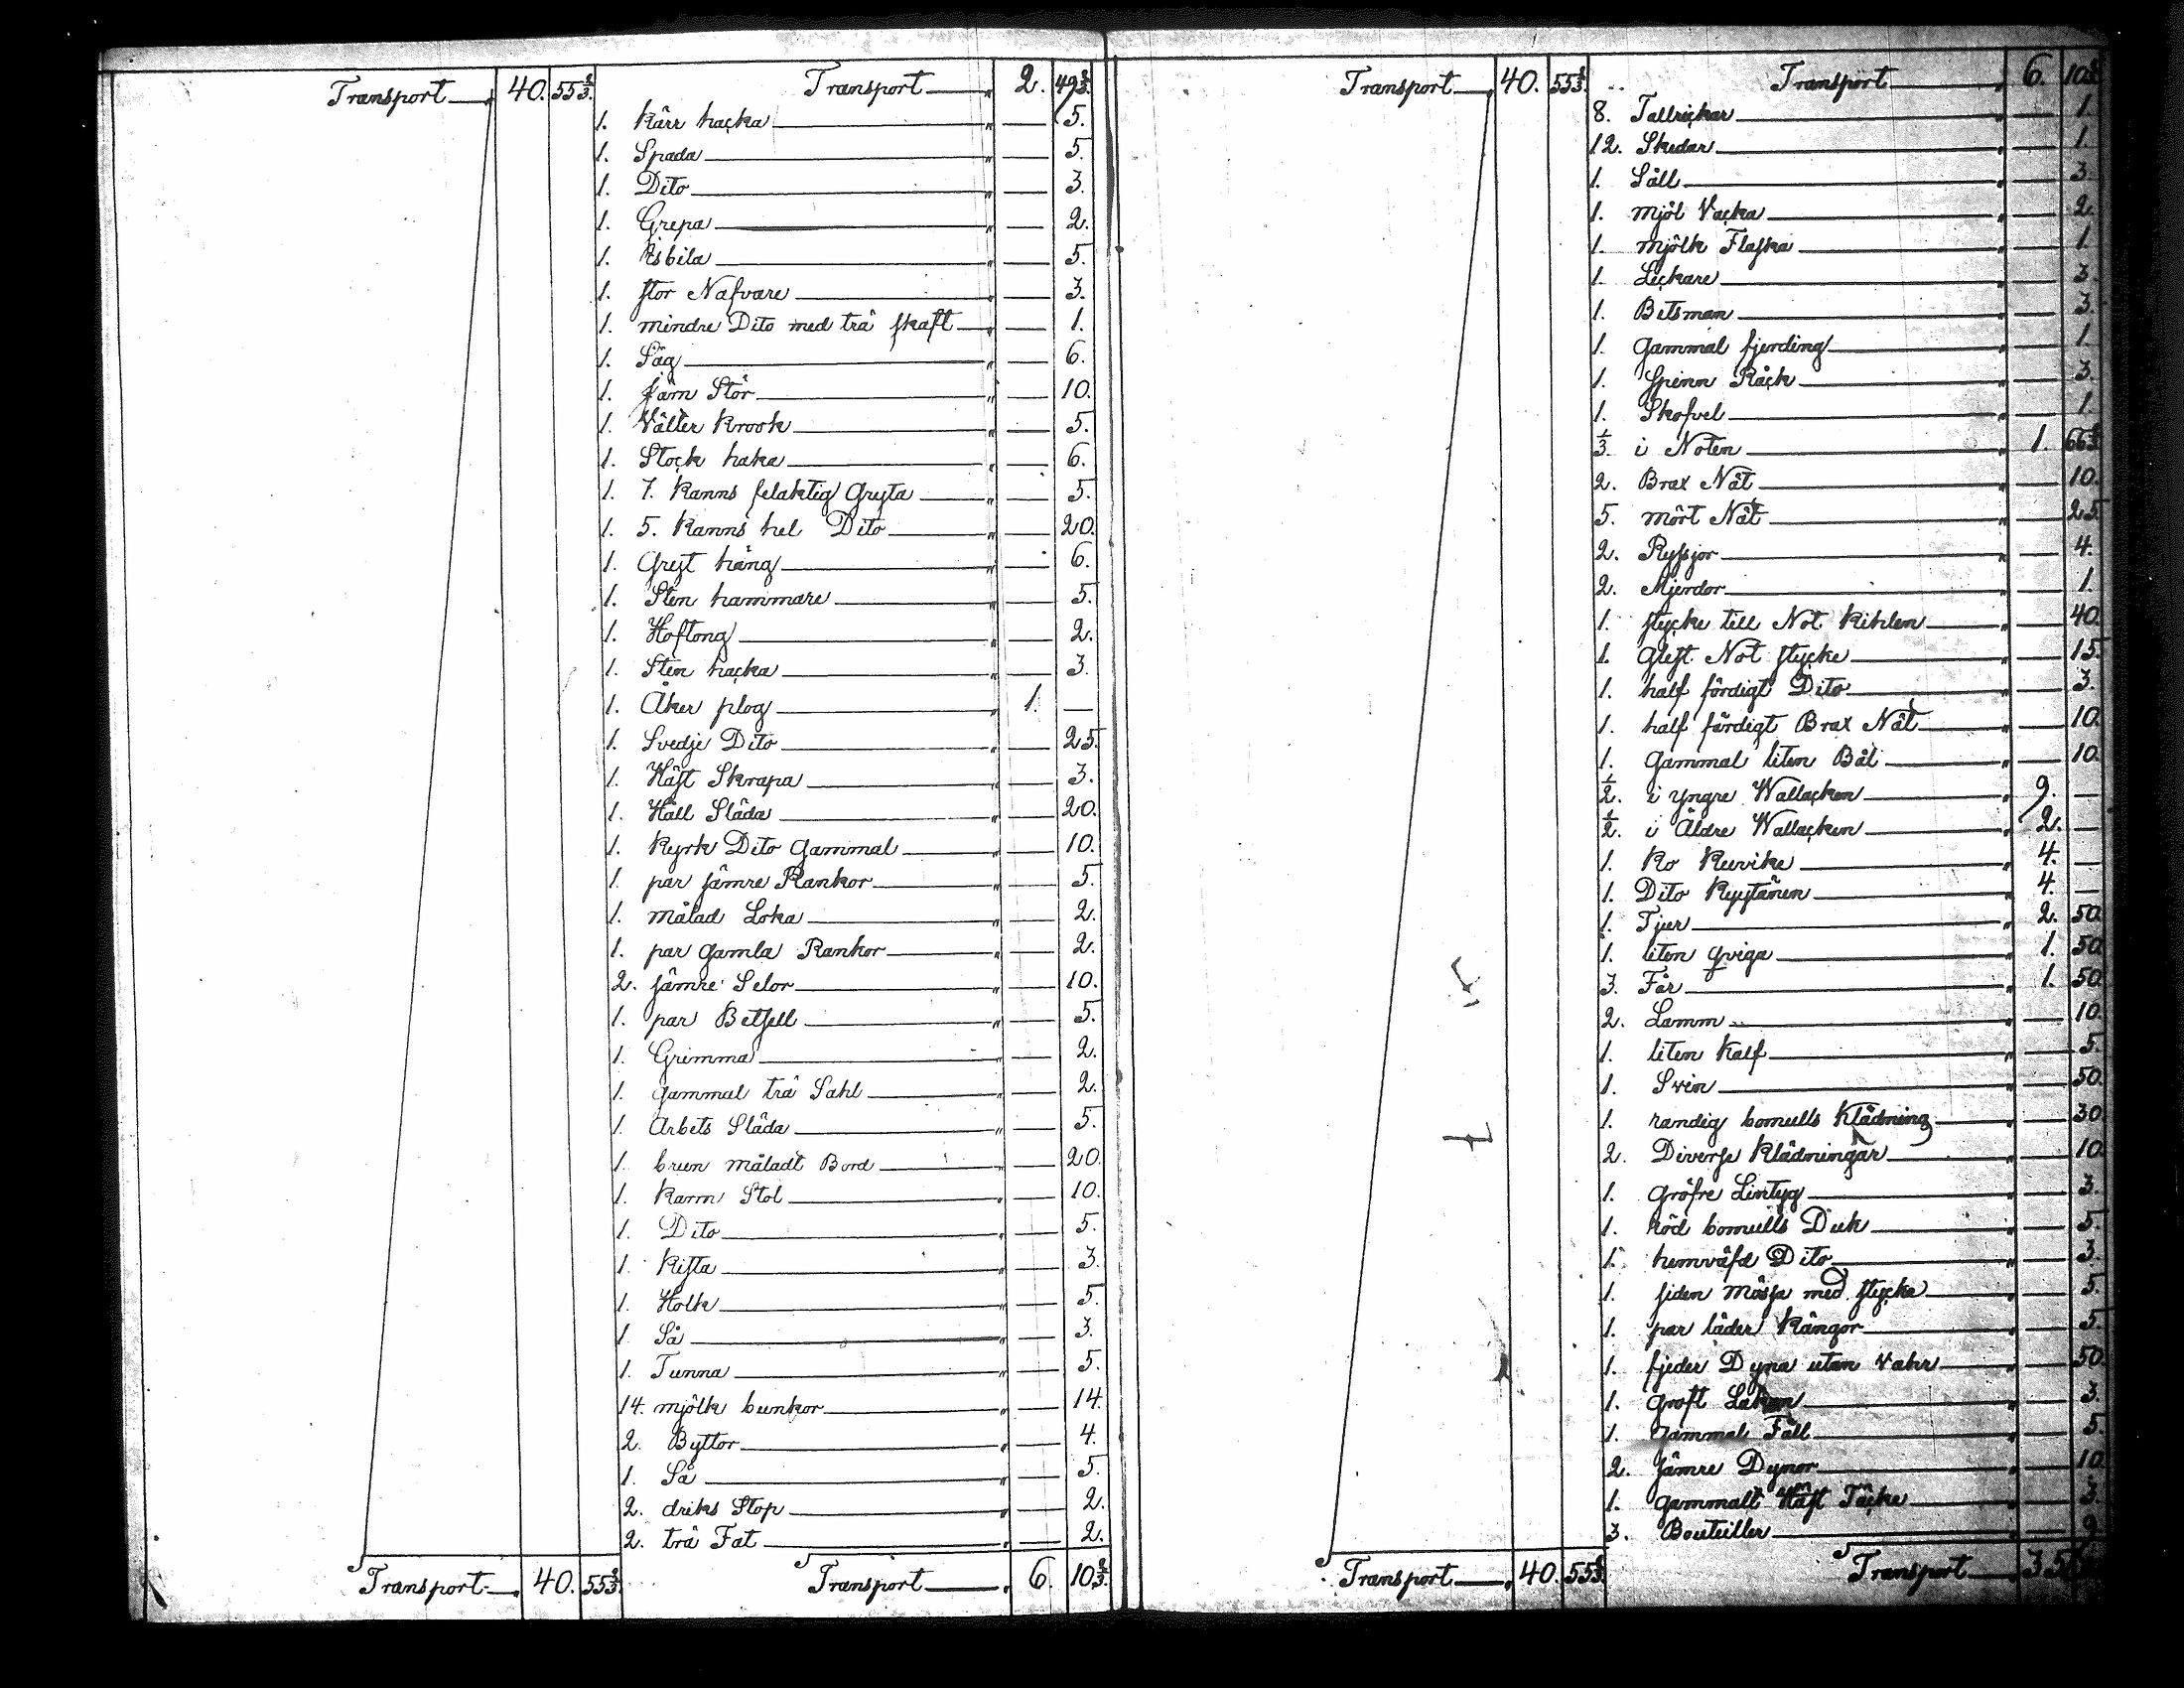 Transport 40. 55 2/3. Transport 2. 49 2/3.
1. Kärr hacka — 5.
1. Spada — 5.
1. Dito — 3.
1. Grepa — 2.
1. Isbila — 5.
1. stor Nafvare — 3.
1. mindre Dito med trä skaft — 1.
1. Såg — 6.
1. Järn Stör — 10.
1. Välter Krook — 5.
1. Stock haka — 6.
1. 7. Kanns felaktig Gryta — 5.
1. 5. Kanns hel Dito — 20.
1. Gryt häng — 6.
1. Sten hammare — 5.
1. Hoftong — 2.
1. Sten hacka — 3.
1. Åker plog 1. —
1. Svedje Dito — 25.
1. Häst Skrapa — 3.
1. Håll Släda — 20.
1. Kyrk Dito Gammal — 10.
1. par sämre Rankor — 5.
1. målad Loka — 2.
1. par gamla Rankor — 2.
2. sämre Selor — 10.
1. par Betsell — 5.
1. Grimma — 2.
1. gammal trä Sahl — 2.
1. Arbets Släda — 5.
1. brun måladt Bord — 20.
1. Karm Stol — 10.
1. Dito — 5.
1. Kista — 3.
1. Holk — 5.
1. Så — 3.
1. Tunna — 5.
14. mjölk bunkor — 14.
2. Byttor — 4.
1. Så — 5.
2. driks Stop — 2.
2. trä Fat — 2.
Transport 40. 55 2/3. Transport 6. 10 2/3.
Transport 40. 55 2/3. Transport 6. 10 2/3
8. Tallrickar — 1.
12. Skedar — 1.
1. Såll — 3.
1. mjöl Vacka — 2.
1. mjölk Flaska — 1.
1. Leckare — 3.
1. Betsman — 3.
1. Gammal fjerding — 1.
1. Spinn Råck — 3.
1. Skofvel — 1.
1/3. i Noten 1. 66 2/3
2. Brax Nät — 10.
5. mört Nät — 25
2. Ryssjor — 4.
2. Mjerdor — 1.
1. stycke till Not Kihlen — 40.
1. Glest Not stycke — 15.
1. half färdigt Dito — 3.
1. half färdigt Brax Nät — 10.
1. Gammal liten Båt — 10.
1/2. i Yngre Wallacken 9. —
1/2. i Äldre Wallacken 2. —
1. Ko Kuvike 4. —
1. Dito 4. —
1. Tjur 2. 50.
1. liten qviga 1. 50
3. Får 1. 50
2. Lamm — 10.
1. liten Kalf — 5.
1. Svin — 50.
1. randig bomulls Klädning — 30
2. Diverse Klädningar — 10
1. gröfre Lintyg — 3.
1. röd bomulls Duk — 5.
1. hemväfd Dito — 3.
1. siden mössa med stycke — 5.
1. par läder Kängor — 5.
1. fjeder Dyna utan vahr — 50
1. groft Lakan — 3.
1. Gammal Fäll — 5.
2. sämre Dynor — 10
1. gammalt Häst Täcke — 3.
3. Bouteiller — 9.
Transport 40. 55 2/3. Transport 35.